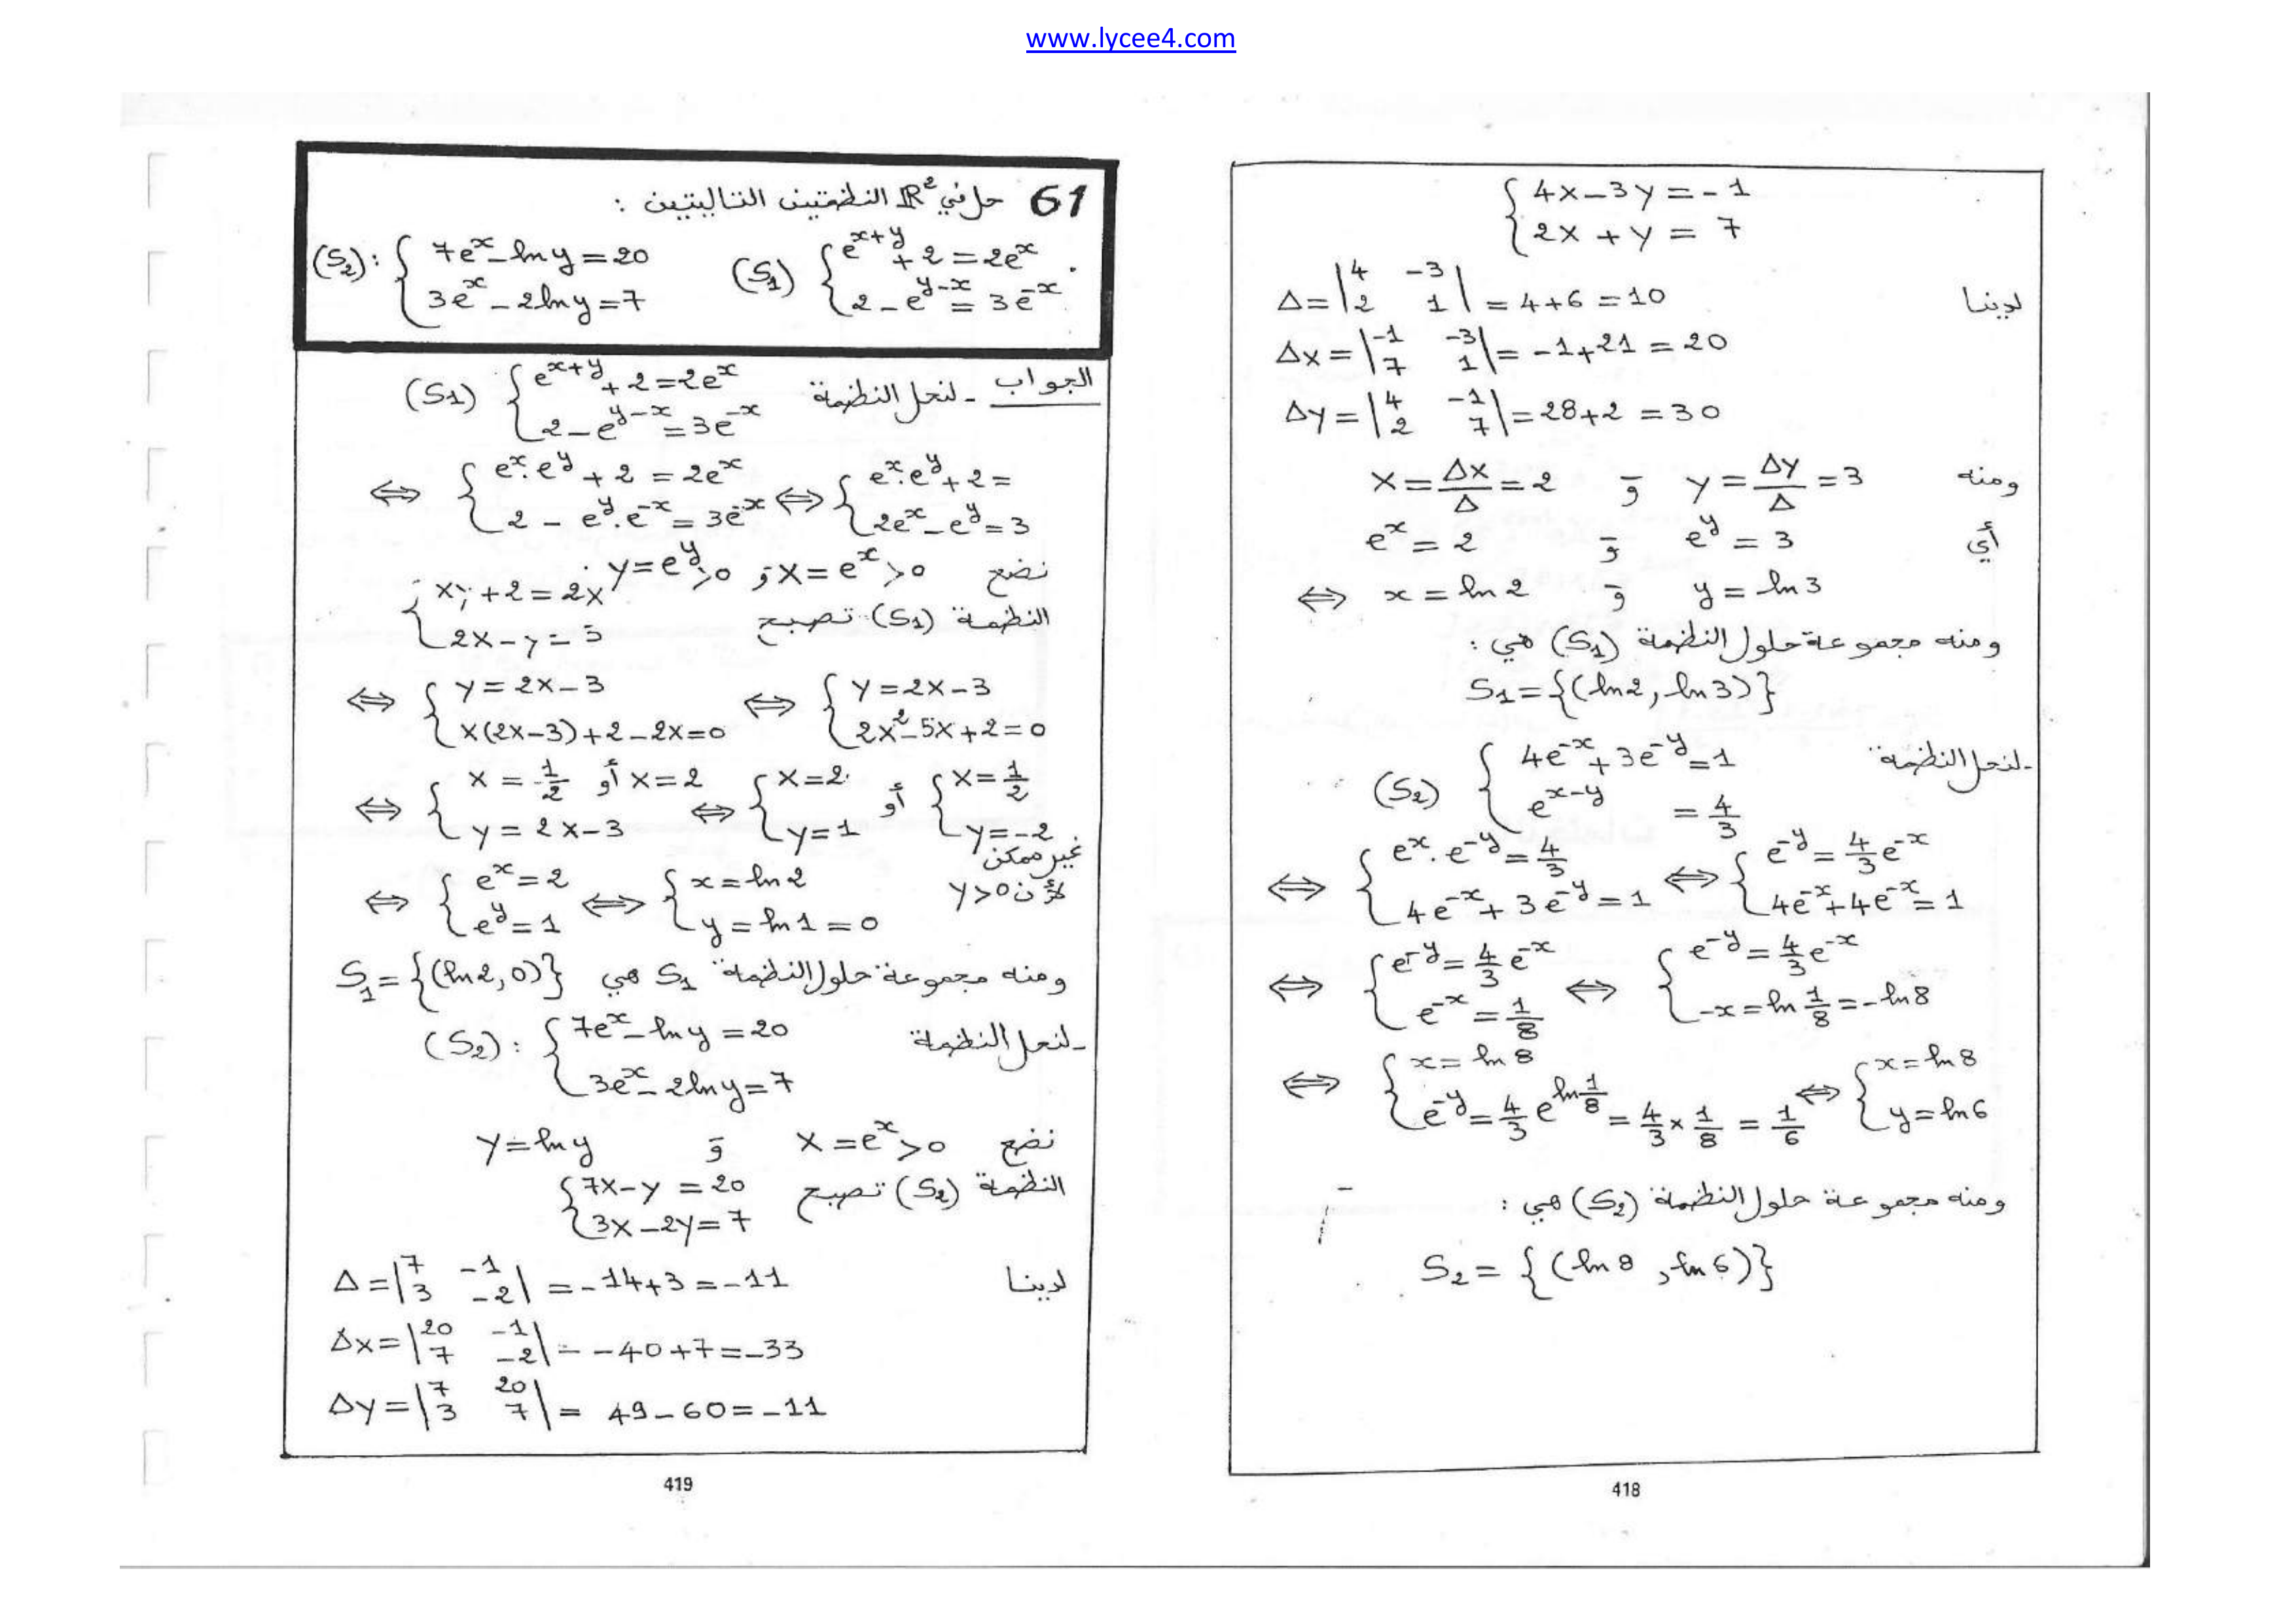 www.lycee4.com
{ 4X - 3Y = - 1
{ 2X + Y = 7
لدينا Δ = |4 -3; 2 1| = 4+6 = 10
Δx = |-1 -3; 7 1| = -1+21 = 20
Δy = |4 -1; 2 7| = 28+2 = 30
ومنه X = Δx/Δ = 2 و Y = Δy/Δ = 3
أي e^x = 2 و e^y = 3
⇔ x = ln 2 و y = ln 3
ومنه مجموعة حلول النظمة (S1) هي :
S1 = {(ln2, ln3)}
- لنحل النظمة (S2) { 4e^-x + 3e^-y = 1
{ e^x-y = 4/3
⇔ { e^x . e^-y = 4/3 ⇔ { e^-y = 4/3 e^-x
{ 4e^-x + 3e^-y = 1 { 4e^-x + 4e^-x = 1
⇔ { e^-y = 4/3 e^-x ⇔ { e^-y = 4/3 e^-x
{ e^-x = 1/8 { -x = ln 1/8 = -ln8
⇔ { x = ln 8 ⇔ { x = ln 8
{ e^-y = 4/3 e^ln 1/8 = 4/3 × 1/8 = 1/6 { y = ln6
ومنه مجموعة حلول النظمة (S2) هي :
S2 = {(ln 8 , ln 6)}
418
61 حل في ℝ² النظمتين التاليتين :
(S1) { e^x+y + 2 = 2e^x . (S2) : { 7e^x - ln y = 20
{ 2 - e^y-x = 3e^-x { 3e^x - 2ln y = 7
الجواب - لنحل النظمة (S1) { e^x+y + 2 = 2e^x
{ 2 - e^y-x = 3e^-x
⇔ { e^x . e^y + 2 = 2e^x ⇔ { e^x . e^y + 2 =
{ 2 - e^y . e^-x = 3e^-x { 2e^x - e^y = 3
نضع X = e^x > 0 و Y = e^y > 0
النظمة (S1) تصبح { XY + 2 = 2X
{ 2X - Y = 3
⇔ { Y = 2X - 3 ⇔ { Y = 2X - 3
{ X(2X-3) + 2 - 2X = 0 { 2X² - 5X + 2 = 0
⇔ { X = 1/2 أو X = 2 ⇔ { X = 2 أو { X = 1/2
{ Y = 2X - 3 { Y = 1 { Y = -2
غير ممكن
لأن Y > 0
⇔ { e^x = 2 ⇔ { x = ln 2
{ e^y = 1 { y = ln 1 = 0
ومنه مجموعة حلول النظمة S1 هي S1 = {(ln2, 0)}
- لنحل النظمة (S2) : { 7e^x - ln y = 20
{ 3e^x - 2ln y = 7
نضع X = e^x > 0 و Y = ln y
النظمة (S2) تصبح { 7X - Y = 20
{ 3X - 2Y = 7
لدينا Δ = |7 -1; 3 -2| = -14+3 = -11
Δx = |20 -1; 7 -2| = -40+7 = -33
Δy = |7 20; 3 7| = 49-60 = -11
419